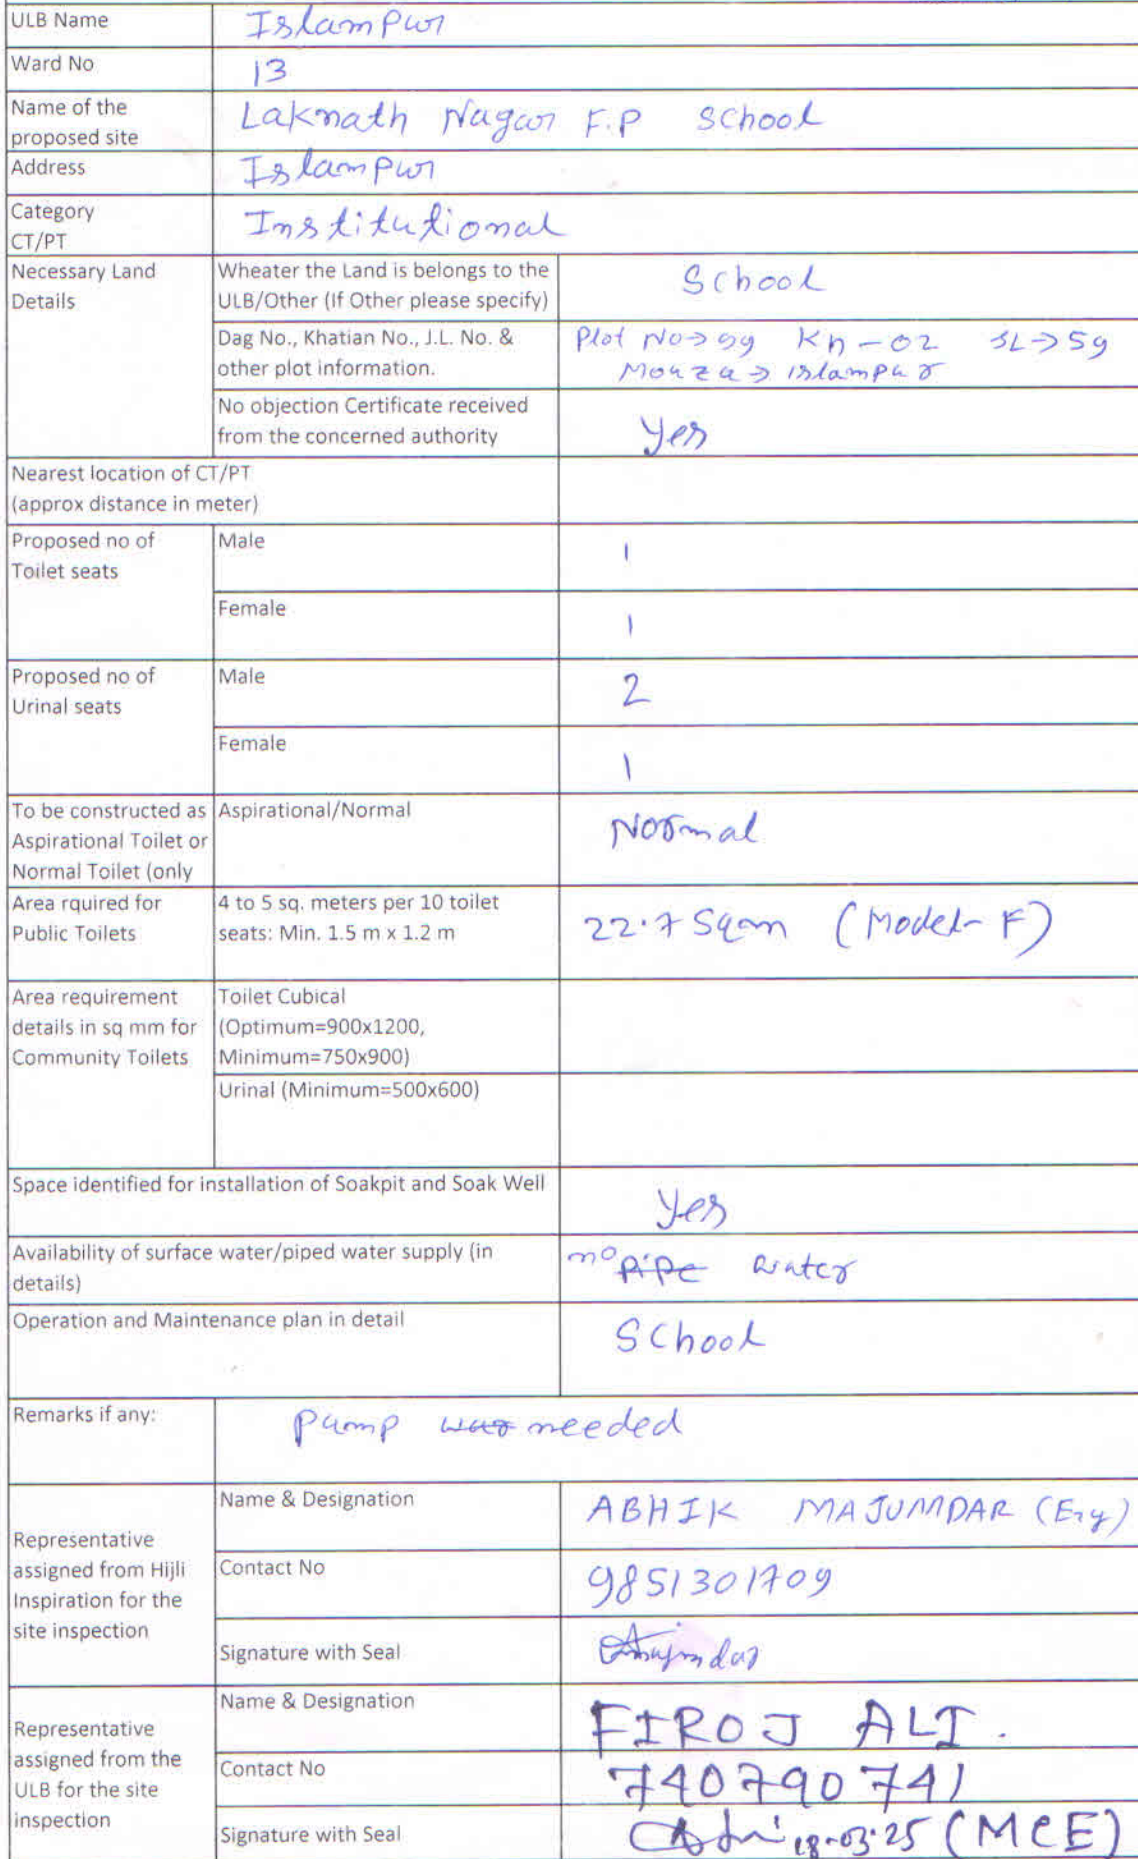 ULB Name Islampur
Ward No 13
Name of the
proposed site Laknath Nagar F.P School
Address Islampur
Category
CT/PT Institutional
Necessary Land
Details
Wheater the Land is belongs to the
ULB/Other (If Other please specify) School
Dag No., Khatian No., J.L. No. &
other plot information.
Plot No→ 99 Kh-02 JL→59
Mouza→ islampur
No objection Certificate received
from the concerned authority yes
Nearest location of CT/PT
(approx distance in meter)
Proposed no of
Toilet seats
Male 1
Female 1
Proposed no of
Urinal seats
Male 2
Female 1
To be constructed as
Aspirational Toilet or
Normal Toilet (only
Aspirational/Normal Normal
Area rquired for
Public Toilets
4 to 5 sq. meters per 10 toilet
seats: Min. 1.5 m x 1.2 m
22.7 Sqm (Model-F)
Area requirement
details in sq mm for
Community Toilets
Toilet Cubical
(Optimum=900x1200,
Minimum=750x900)
Urinal (Minimum=500x600)
Space identified for installation of Soakpit and Soak Well yes
Availability of surface water/piped water supply (in
details)
no pipe water
Operation and Maintenance plan in detail School
Remarks if any: Pump needed
Representative
assigned from Hijli
Inspiration for the
site inspection
Name & Designation ABHIK MAJUMDAR (Eng)
Contact No 9851301709
Signature with Seal
Representative
assigned from the
ULB for the site
inspection
Name & Designation FIROJ ALI.
Contact No 740790741
Signature with Seal 18-03-25 (MCE)